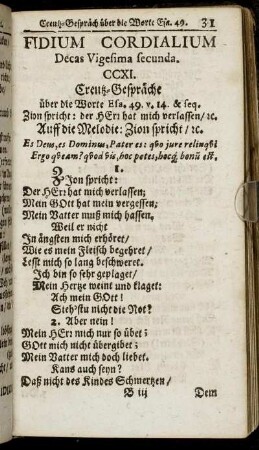 Creutz-Gespräch über die Worte Esa. 49. 31
FIDIUM CORDIALIUM
Decas Vigesima secunda.
CCXI.
Creutz-Gespräche
über die Worte Esa. 49. v. 14. & seq.
Zion spricht: der HErr hat mich verlassen/ ꝛc.
Auff die Melodie: Zion spricht/ ꝛc.
Es Deus, es Dominus, Pater es: quo jure relinquis
Ergo
1.
Zion spricht:
Der HErr hat mich verlassen;
Mein GOtt hat mein vergessen;
Mein Vatter muß mich hassen,
Weil er nicht
In ängsten mich erhöret/
Wie es mein Fleisch begehret/
Lesst mich so lang beschweret.
Ich bin so sehr geplaget/
Mein Hertze weint und klaget:
Ach mein GOtt!
Sieh'stu nicht die Not?
2. Aber nein!
Mein HErr mich nur so übet;
GOtt mich nicht übergibet;
Mein Vatter mich doch liebet.
Kans auch seyn?
Daß nicht des Kindes Schmertzen/
B iij Dem